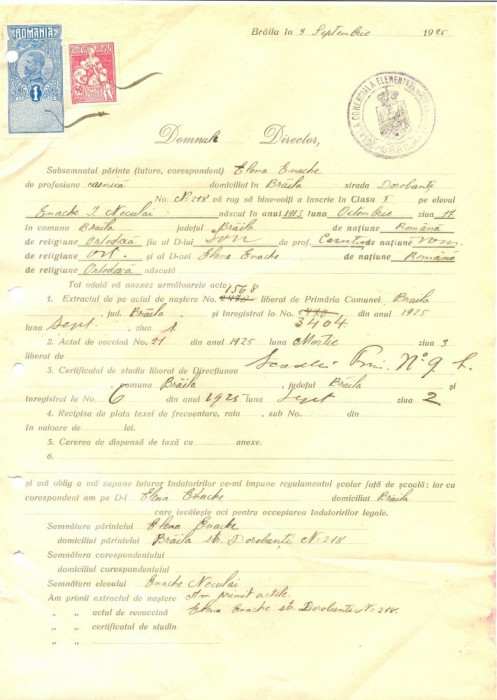 Brăila în 3 Septembrie 1925
ROMANIA
1
Domnule Director,
Subsemnatul părinte (tutore, corespondent) Elena Enache
de profesiune casnică domiciliat în Brăila strada Dorobanți
No. No 218 vă rog să bine-voiți a înscrie în Clasa I pe elevul
Enache I. Neculai născut în anul 1913 luna Octombrie ziua
în comuna Brăila județul Brăila de națiune Română
de religiune Ortodoxă fiu al D-lui Ion de prof. de națiune rom.
de religiune Ort. și al D-nei Elena Enache de națiune Română
de religiune Ortodoxă născută
Tot odată vă anexez următoarele acte:
1568
1. Extractul de pe actul de naștere No. liberat de Primăria Comunei Braila
, jud. Brăila și înregistrat la No. din anul 1925
luna Sept. , ziua 1 3404
2. Actul de vaccină No. 21 din anul 1925 luna Martie ziua 3
liberat de
3. Certificatul de studiu liberat de Direcțiunea Scoalei Prim. No 9 b.
, comuna Brăila , județul Brăila și
înregistrat la No. 6 din anul 1925 luna Sept ziua 2
4. Recipisa de plata taxei de frecventare, rata , sub No. din
în valoare de lei.
5. Cererea de dispensă de taxă cu anexe.
6.
și mă oblig a mă supune tuturor îndatoririlor ce-mi impune regulamentul școlar față de școală: iar ca
corespondent am pe D-l Elena Enache domiciliat Brăila
care iscălește aci pentru acceptarea îndatoririlor legale.
Semnătura părintelui Elena Enache
domiciliul părintelui Brăila str. Dorobanți No 218
Semnătura corespondentului
domiciliul corespondentului
Semnătura elevului Enache Neculai
Am primit extractul de naștere Am primit actele
„ „ actul de revaccină Elena Enache str. Dorobanți No. 218.
„ „ certificatul de studiu
„ „